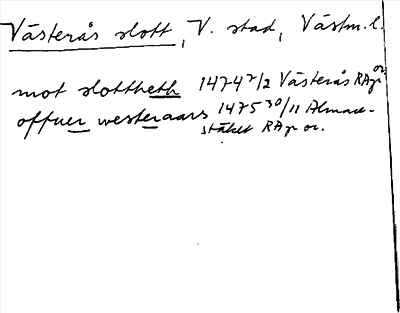 Västerås slott, V. stad, Västm. l.
mot slottheth 1474 7/2 Västerås RAp or.
offuer westeraars 1475 30/11 Almare-
stäket RAp or.